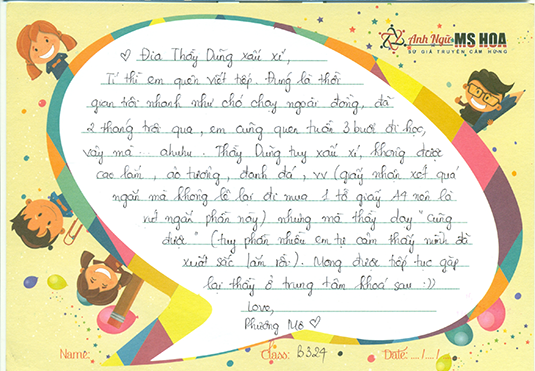 Anh Ngữ MS HOA
SỨ GIẢ TRUYỀN CẢM HỨNG
♡ Địa Thầy Dũng xấu xí,
Tí thì em quên viết tiếp. Đúng là thời
gian trôi nhanh như chó chạy ngoài đồng, đã
2 tháng trôi qua, em cũng quen tuần 3 buổi đi học,
vậy mà ... ahuhu. Thầy Dũng tuy xấu xí, không được
cao lắm, ảo tưởng, đanh đá, vv (giấy nhận xét quá
ngắn mà không lẽ lại đi mua 1 tờ giấy A4 nên là
nó ngắn phần này) nhưng mà thầy dạy "cũng
được" (tuy phần nhiều em tự cảm thấy mình đã
xuất sắc lắm rồi.). Mong được tiếp tục gặp
lại thầy ở trung tâm khoá sau :))
Love,
Phương Mô ♡
Name:
Class: B324
Date: .... /.... /